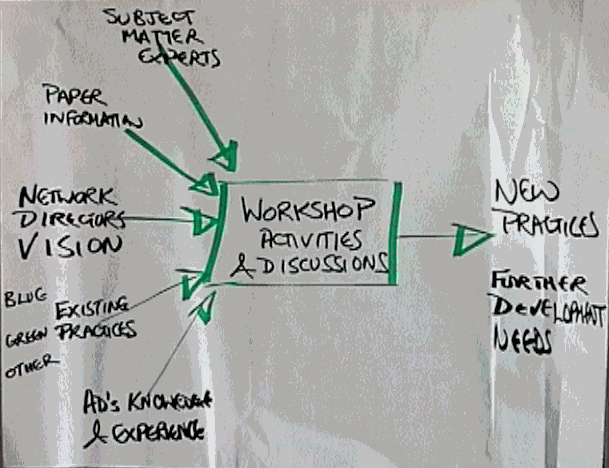 SUBJECT
MATTER
EXPERTS
PAPER
INFORMATION
NETWORK
DIRECTORS
VISION
BLUE
GREEN
OTHER
EXISTING
PRACTICES
AD'S KNOWLEDGE
& EXPERIENCE
WORKSHOP
ACTIVITIES
& DISCUSSIONS
NEW
PRACTICES
FURTHER
DEVELOPMENT
NEEDS